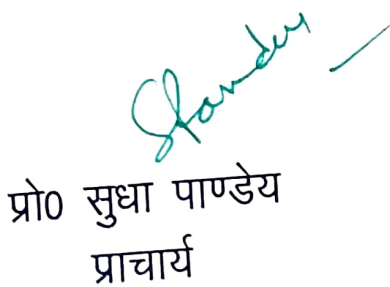 SPandey
प्रो0 सुधा पाण्डेय
प्राचार्य